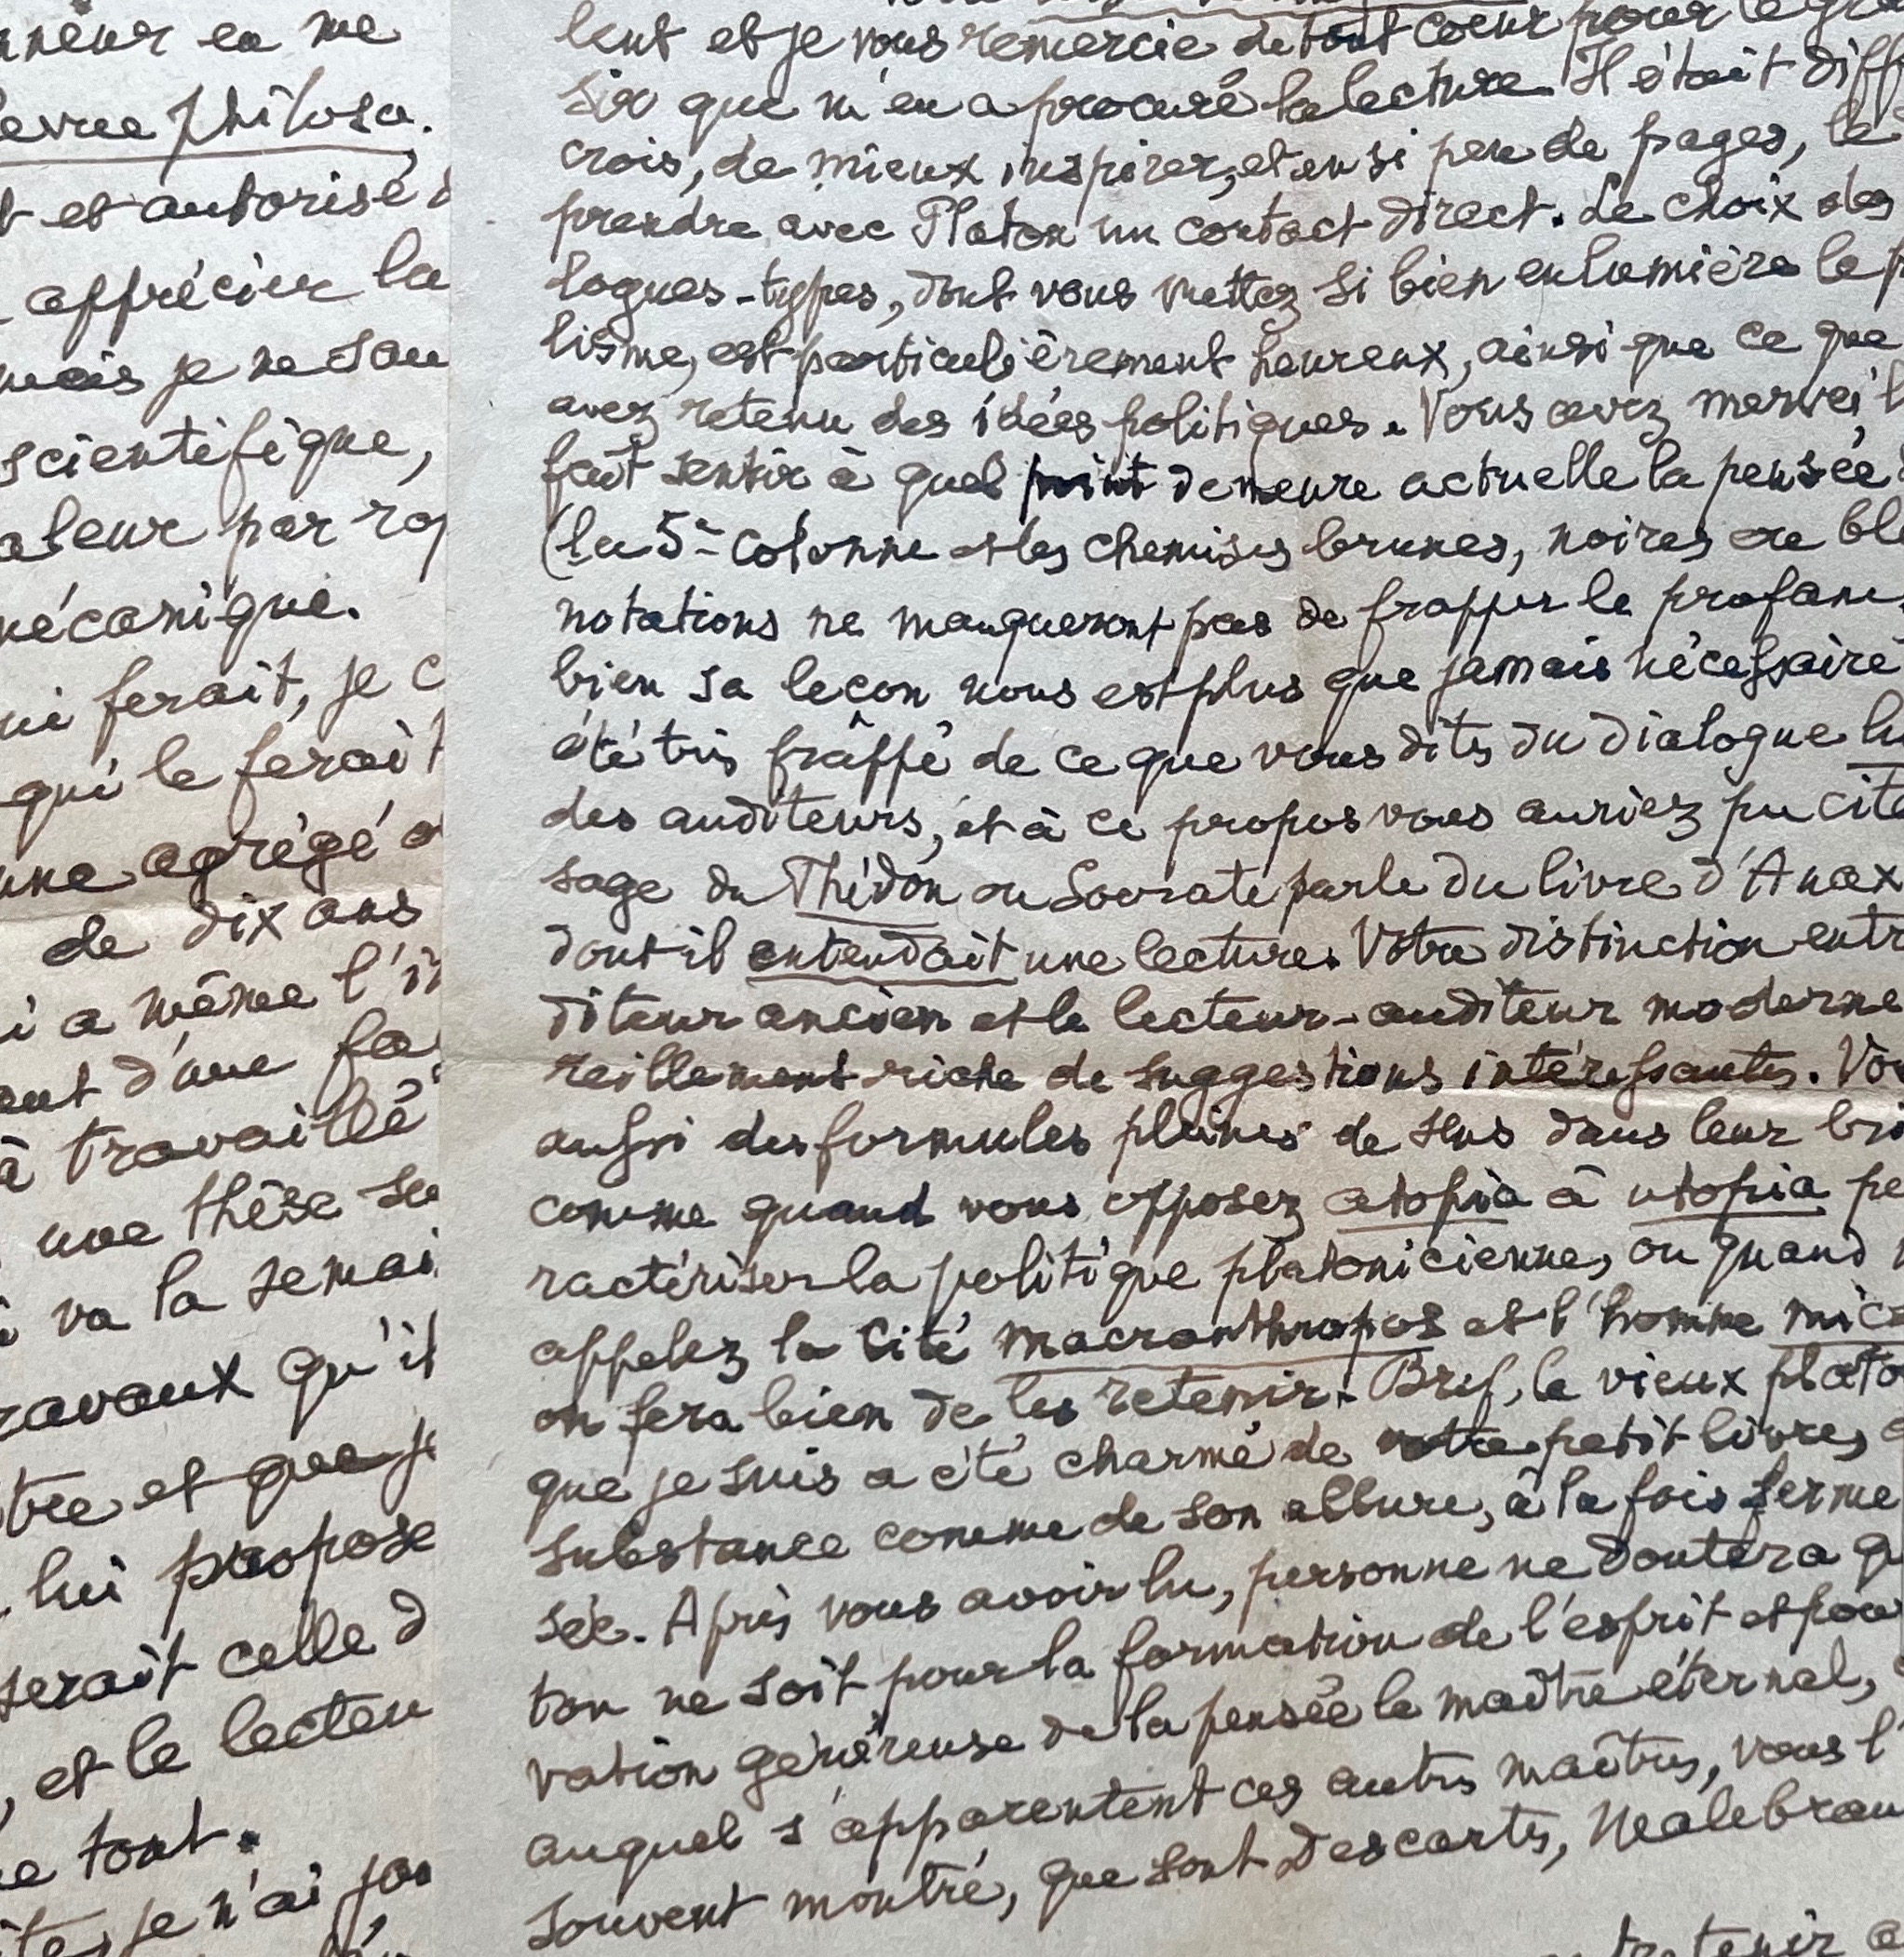 en me
philoso.
et autorisé
apprécier la
mais je ne sau
scientifique,
par
mécanique.
ferait, je c
qui le ferait
agrégé
de dix ans
a même l'i
d'une fa
à travaillé
une thèse su
va la semai
travaux qu'il
et que je
lui propose
serait celle d
, et le lecteu
tout.
je n'ai
lent et je vous remercie de tout coeur pour le
sir que m'en a procuré la lecture. Il était diff
crois, de mieux inspirer, et en si peu de pages, le
prendre avec Platon un contact direct. Le choix des
logues-types, dont vous mettez si bien en lumière le p
lisme, est particulièrement heureux, ainsi que ce que
avez retenu des idées politiques. Vous avez merveil
fait sentir à quel point demeure actuelle la pensée
(la 5e colonne et les chemises brunes, noires ou ble
notations ne manqueront pas de frapper le profane
bien sa leçon nous est plus que jamais nécessaire
été très frappé de ce que vous dites du dialogue lu
des auditeurs, et à ce propos vous auriez pu cite
sage du Phédon ou Socrate parle du livre d'Anax
dont il entendait une lecture. Votre distinction entr
diteur ancien et le lecteur-auditeur moderne
veilleusement riche de suggestions intéressantes. Vo
aussi des formules pleines de sens dans leur bri
comme quand vous opposez atopia à utopia po
ractériser la politique platonicienne, ou quand
appelez la Cité macranthropos et l'homme mic
on fera bien de les retenir. Bref, le vieux plato
que je suis a été charmé de votre petit livre,
substance comme de son allure, à la fois ferme
sée. Après vous avoir lu, personne ne doutera q
ton ne soit pour la formation de l'esprit et pou
vation généreuse de la pensée le maître éternel,
auquel s'apparentent ces autres maîtres, vous l'
souvent montré, que sont Descartes, Malebran